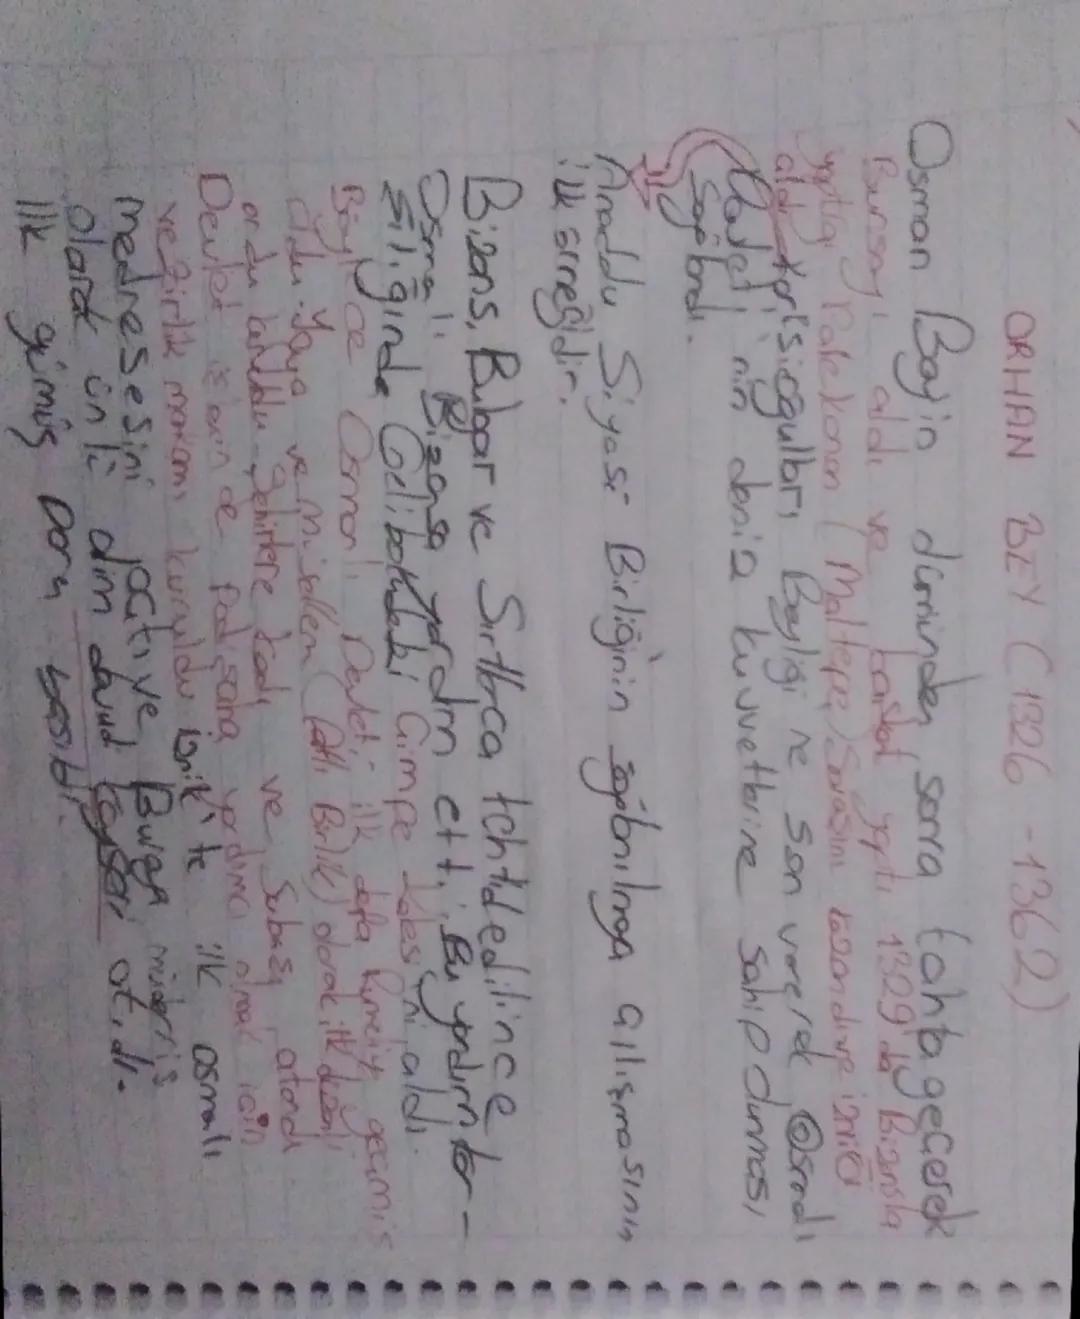 ORHAN BEY (1326 - 1362)
Osman Bayin ölümünden sonra tahta geçerek
Bursayı aldı ve başkent yaptı 1329'da Bizansla
yaptığı Palekanon (Maltepe) Savaşını kazandı ve iznik'i
aldı. Karesioğulları Beyliği ne son vererek Osmanlı
Devleti nin deniz kuvvetlerine sahip olunması
sağlandı.
Anadolu Siyasi Birliğinin sağlanılmaya çalışmasının
ilk örneğidir.
Bizans, Bulgar ve Sırtlarca tehtid edilince
Osmanlı Bizansa yardım etti. Bu yardım kar-
şılığında Geliboludaki Çimpe kalesi ni aldı.
Böylece Osmanlı Devleti ilk defa Rumeliye geçmiş
oldu. Yaya ve müsellem (Atlı Birlik) olarak ilk düzenli
ordu kuruldu. Şehirlere kadı ve Subaşı atandı
Devlet işlerin de Padişaha yardımcı olmak için
vezirlik makamı kuruldu iznik'te ilk osmanlı
medresesini açtı ve Bursa müderris
olarak ünlü alim davud kayseri atıdı.
ilk gümüş Para basıldı.